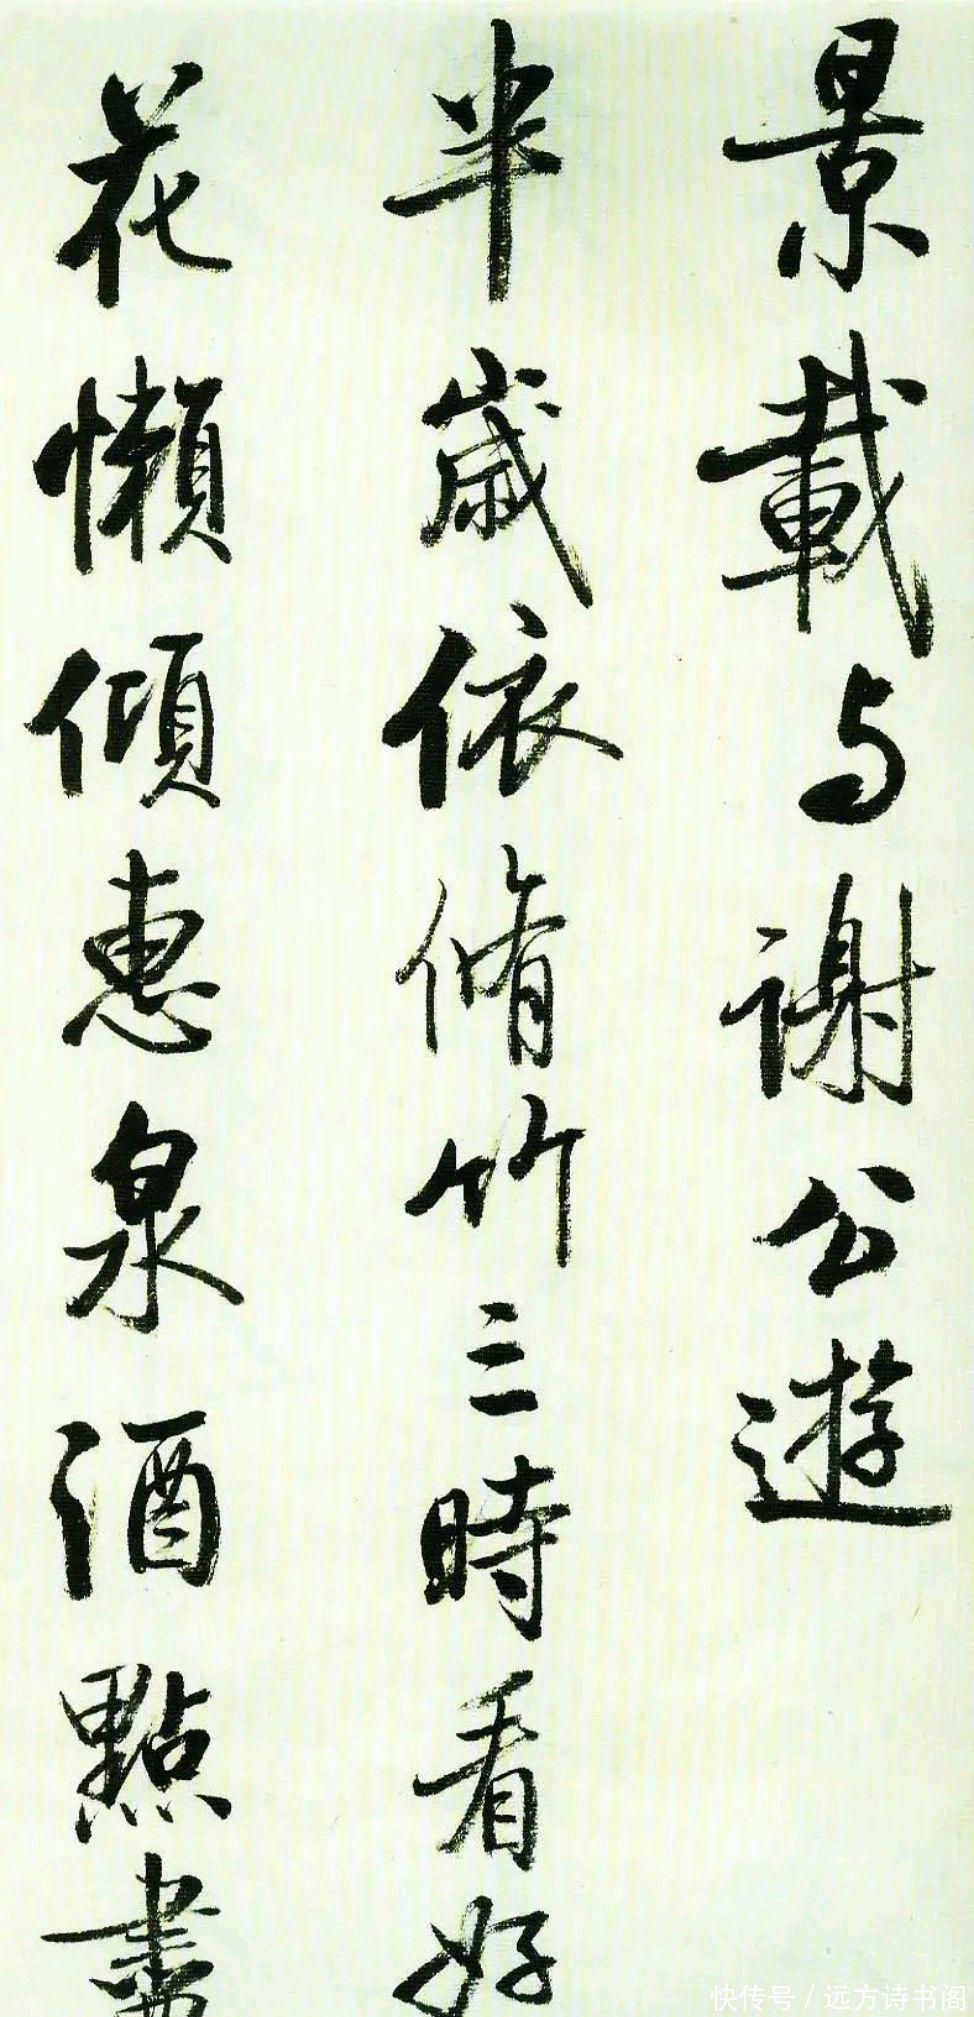 景載与谢公遊
半歲依脩竹三時看好
花懶傾惠泉酒點盡
快传号/远方诗书阁